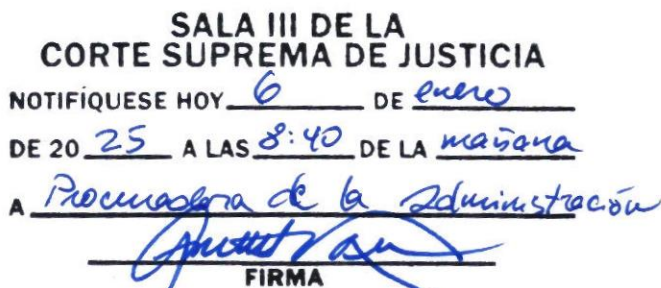 SALA III DE LA
CORTE SUPREMA DE JUSTICIA
NOTIFÍQUESE HOY 6 DE enero
DE 20 25 A LAS 8:40 DE LA mañana
A Procuradora de la Administración
FIRMA